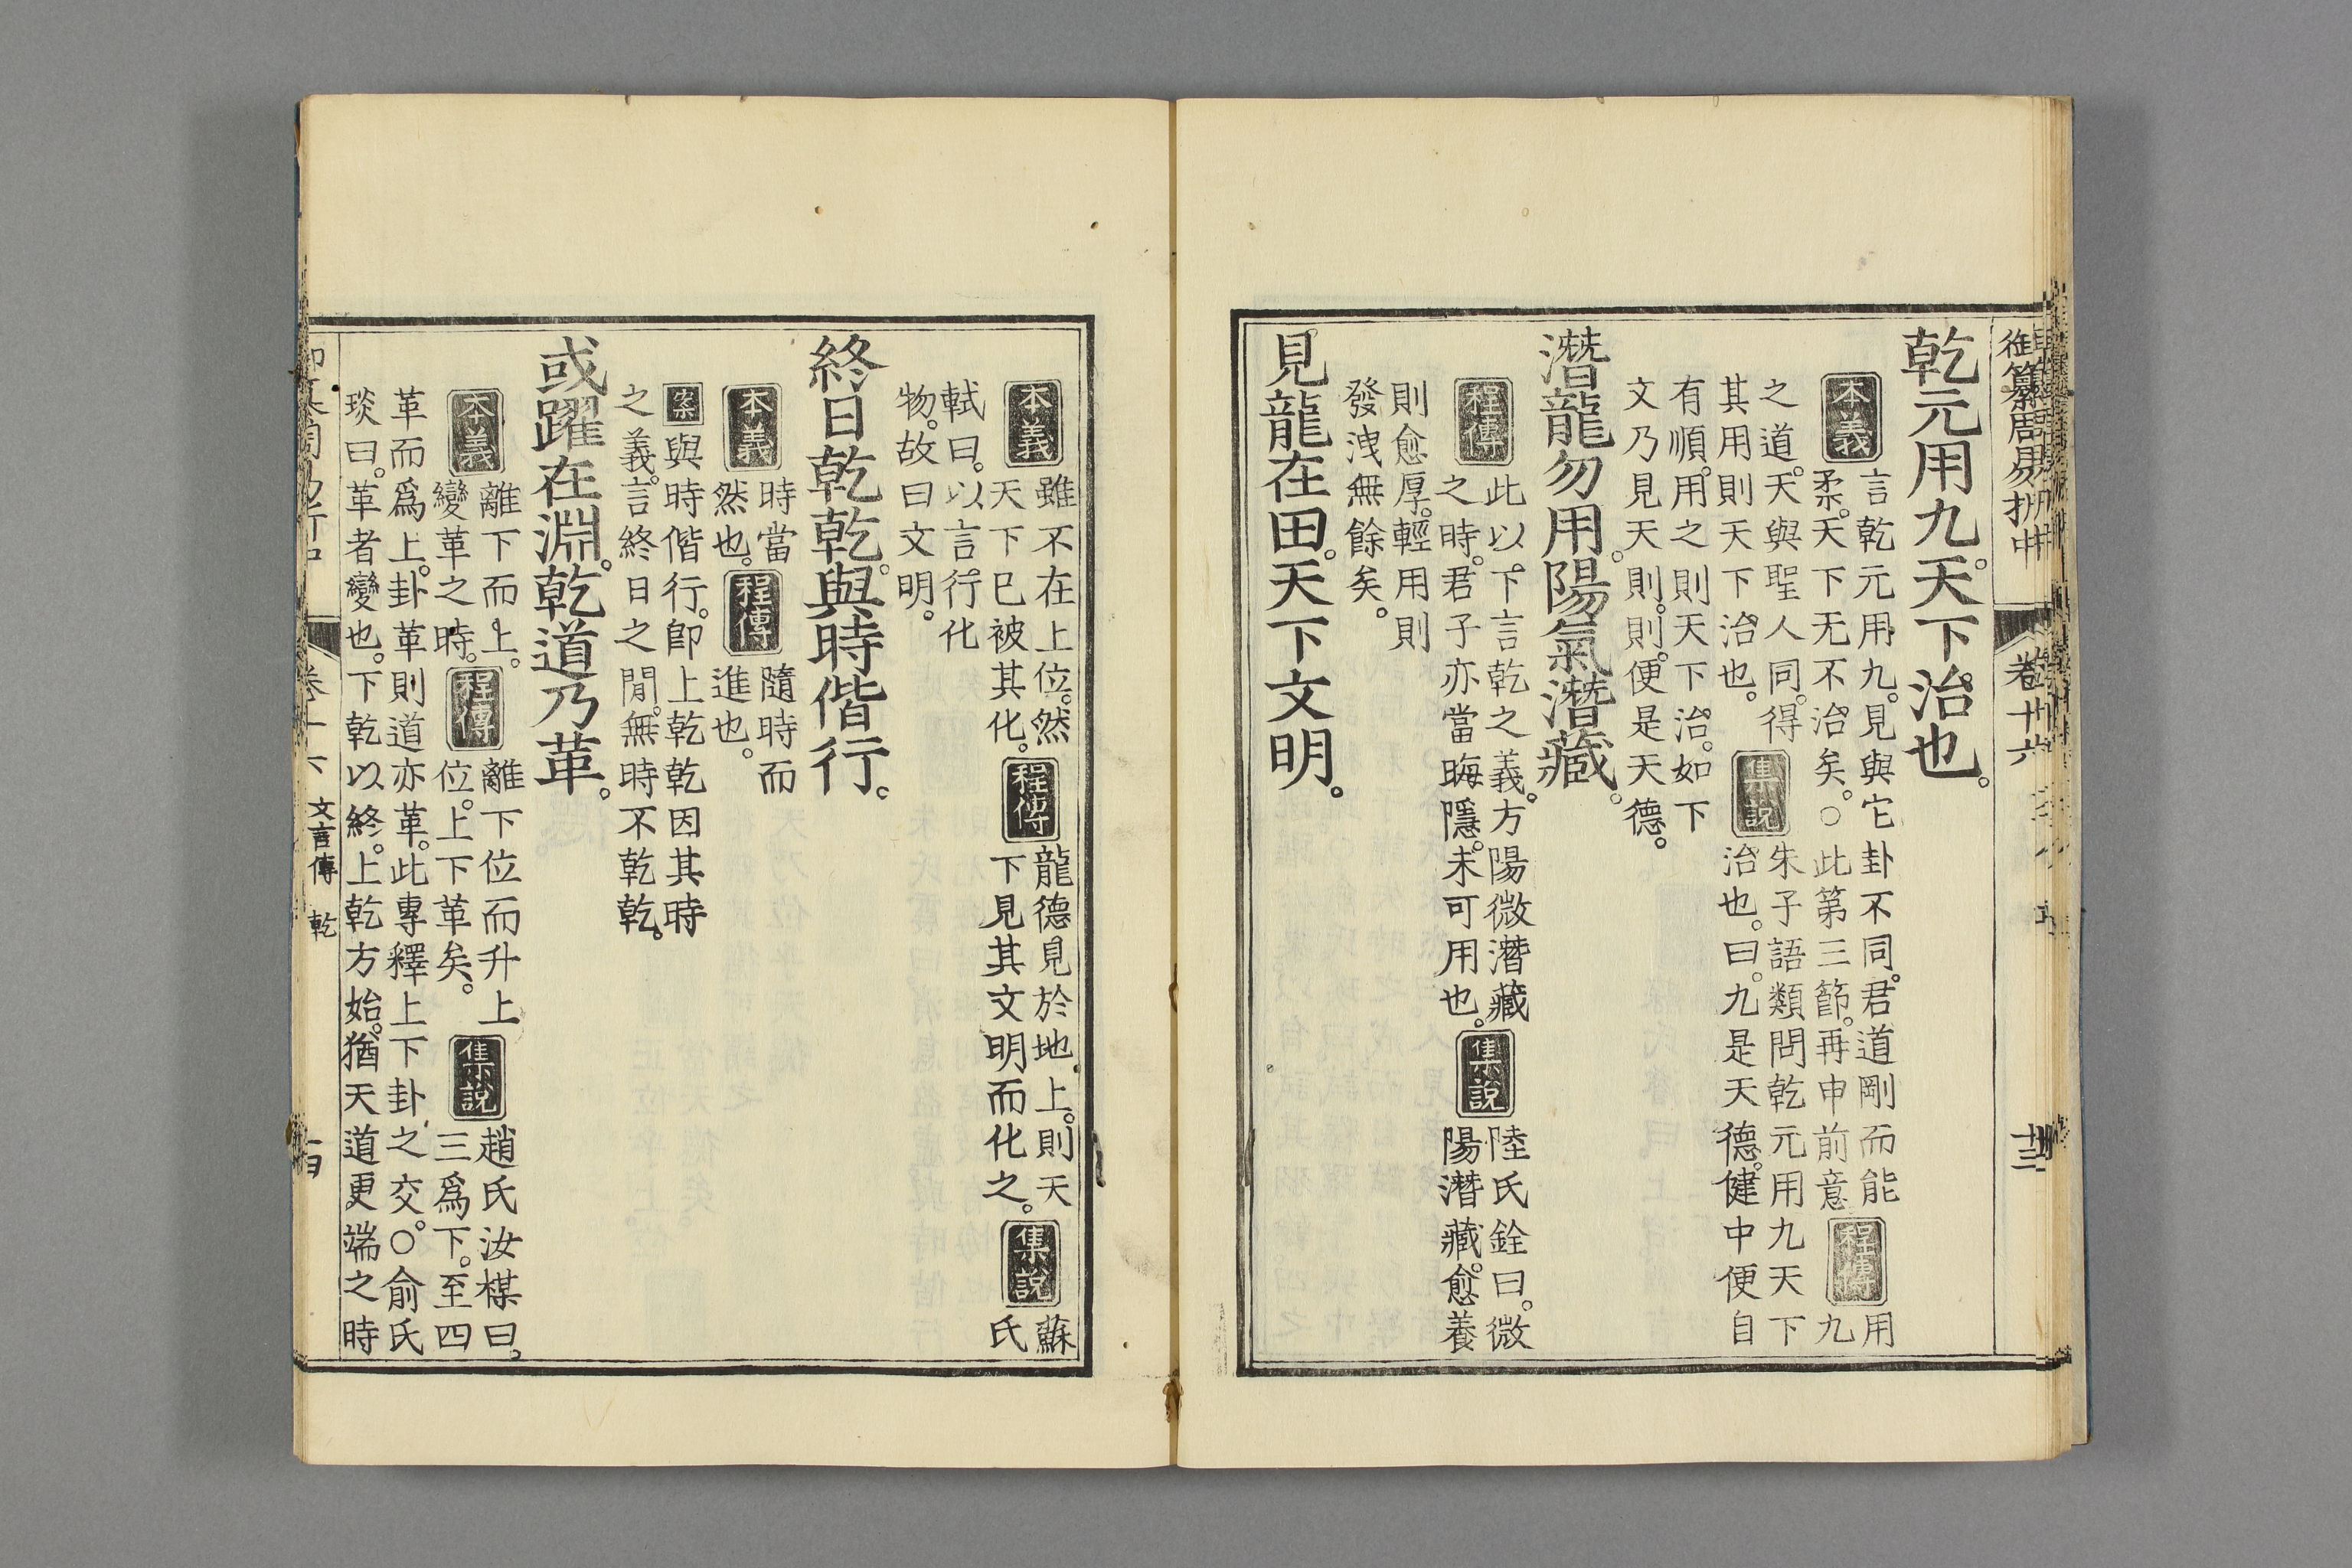 御纂周易折中 卷十六 十三
乾元用九。天下治也。
本義
言乾元用九。見與它卦不同。君道剛而能
柔。天下无不治矣。○此第三節。再申前意
程傳
用
九
之道。天與聖人同。得
其用則天下治也。
集說
朱子語類問乾元用九天下
治也。曰。九是天德。健中便自
有順。用之則天下治。如下
文乃見天則。則便是天德。
潛龍勿用。陽氣潛藏。
程傳
此以下言乾之義。方陽微潛藏
之時。君子亦當晦隱。未可用也。
集說
陸氏銓曰。微
陽潛藏。愈養
則愈厚。輕用則
發洩無餘矣。
見龍在田。天下文明。
本義
雖不在上位。然
天下已被其化。
程傳
龍德見於地上。則天
下見其文明而化之。
集說
蘇
氏
軾曰。以言行化
物。故曰文明。
終日乾乾。與時偕行。
本義
時當
然也。
程傳
隨時而
進也。
案與時偕行。卽上乾乾因其時
之義。言終日之閒。無時不乾乾。
或躍在淵。乾道乃革。
本義
離下而上。
變革之時。
程傳
離下位而升上
位。上下革矣。
集說
趙氏汝楳曰。
三爲下。至四
革而爲上。卦革則道亦革。此專釋上下卦之交。○俞氏
琰曰。革者變也。下乾以終。上乾方始。猶天道更端之時
卷十六 文言傳 乾